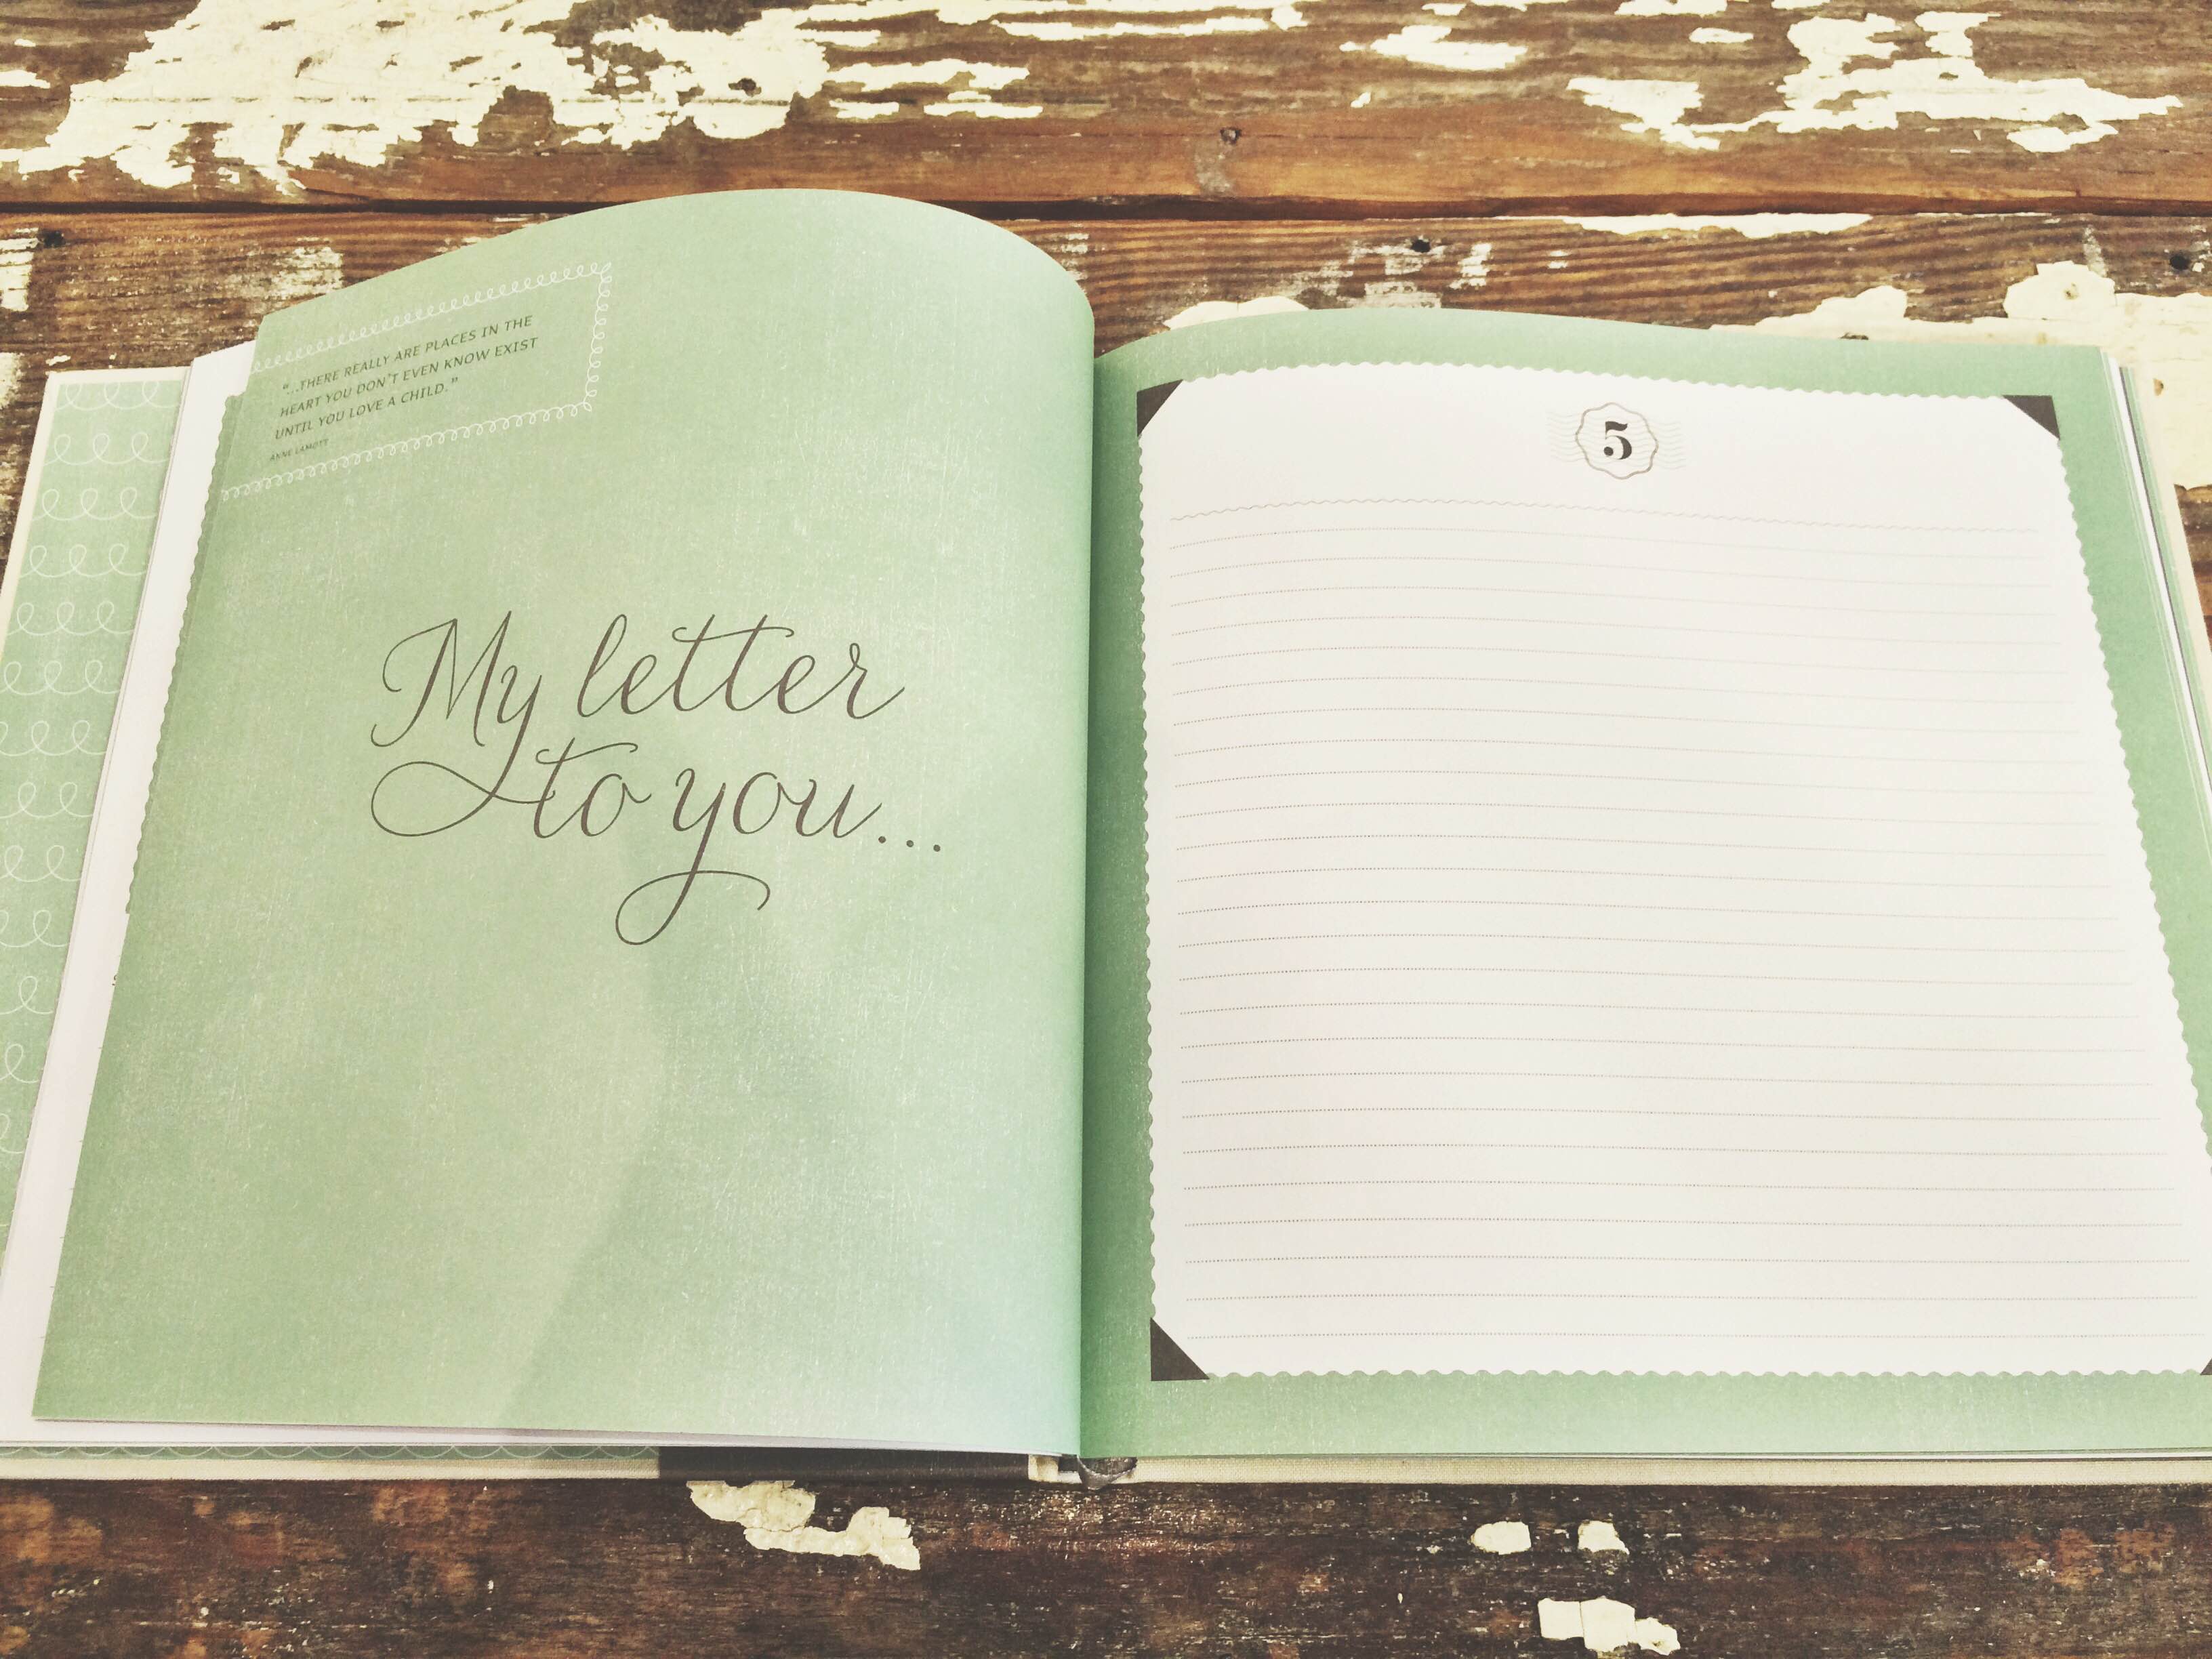 “...THERE REALLY ARE PLACES IN THE
HEART YOU DON'T EVEN KNOW EXIST
UNTIL YOU LOVE A CHILD.”
ANNE LAMOTT
My letter
to you...
5